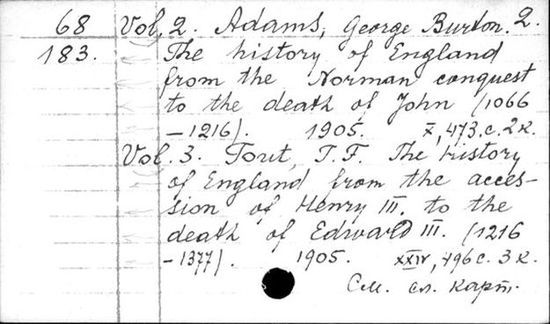 68 Vol. 2. Adams, George Burton. 2.
183. The history of England
from the Norman conquest
to the death of John (1066
-1216). 1905. X, 473.c. 2 к.
Vol. 3. Tout, T.F. The history
of England from the acces-
sion of Henry III. to the
death of Edward III. (1216
-1377). 1905. XXIV, 496 c. 3 к.
См. сл. карт.